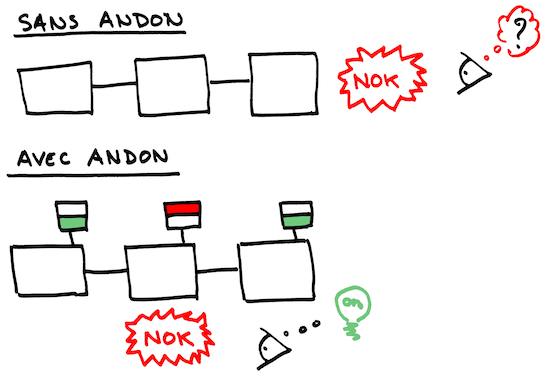 SANS ANDON
?
NOK
AVEC ANDON
on
NOK